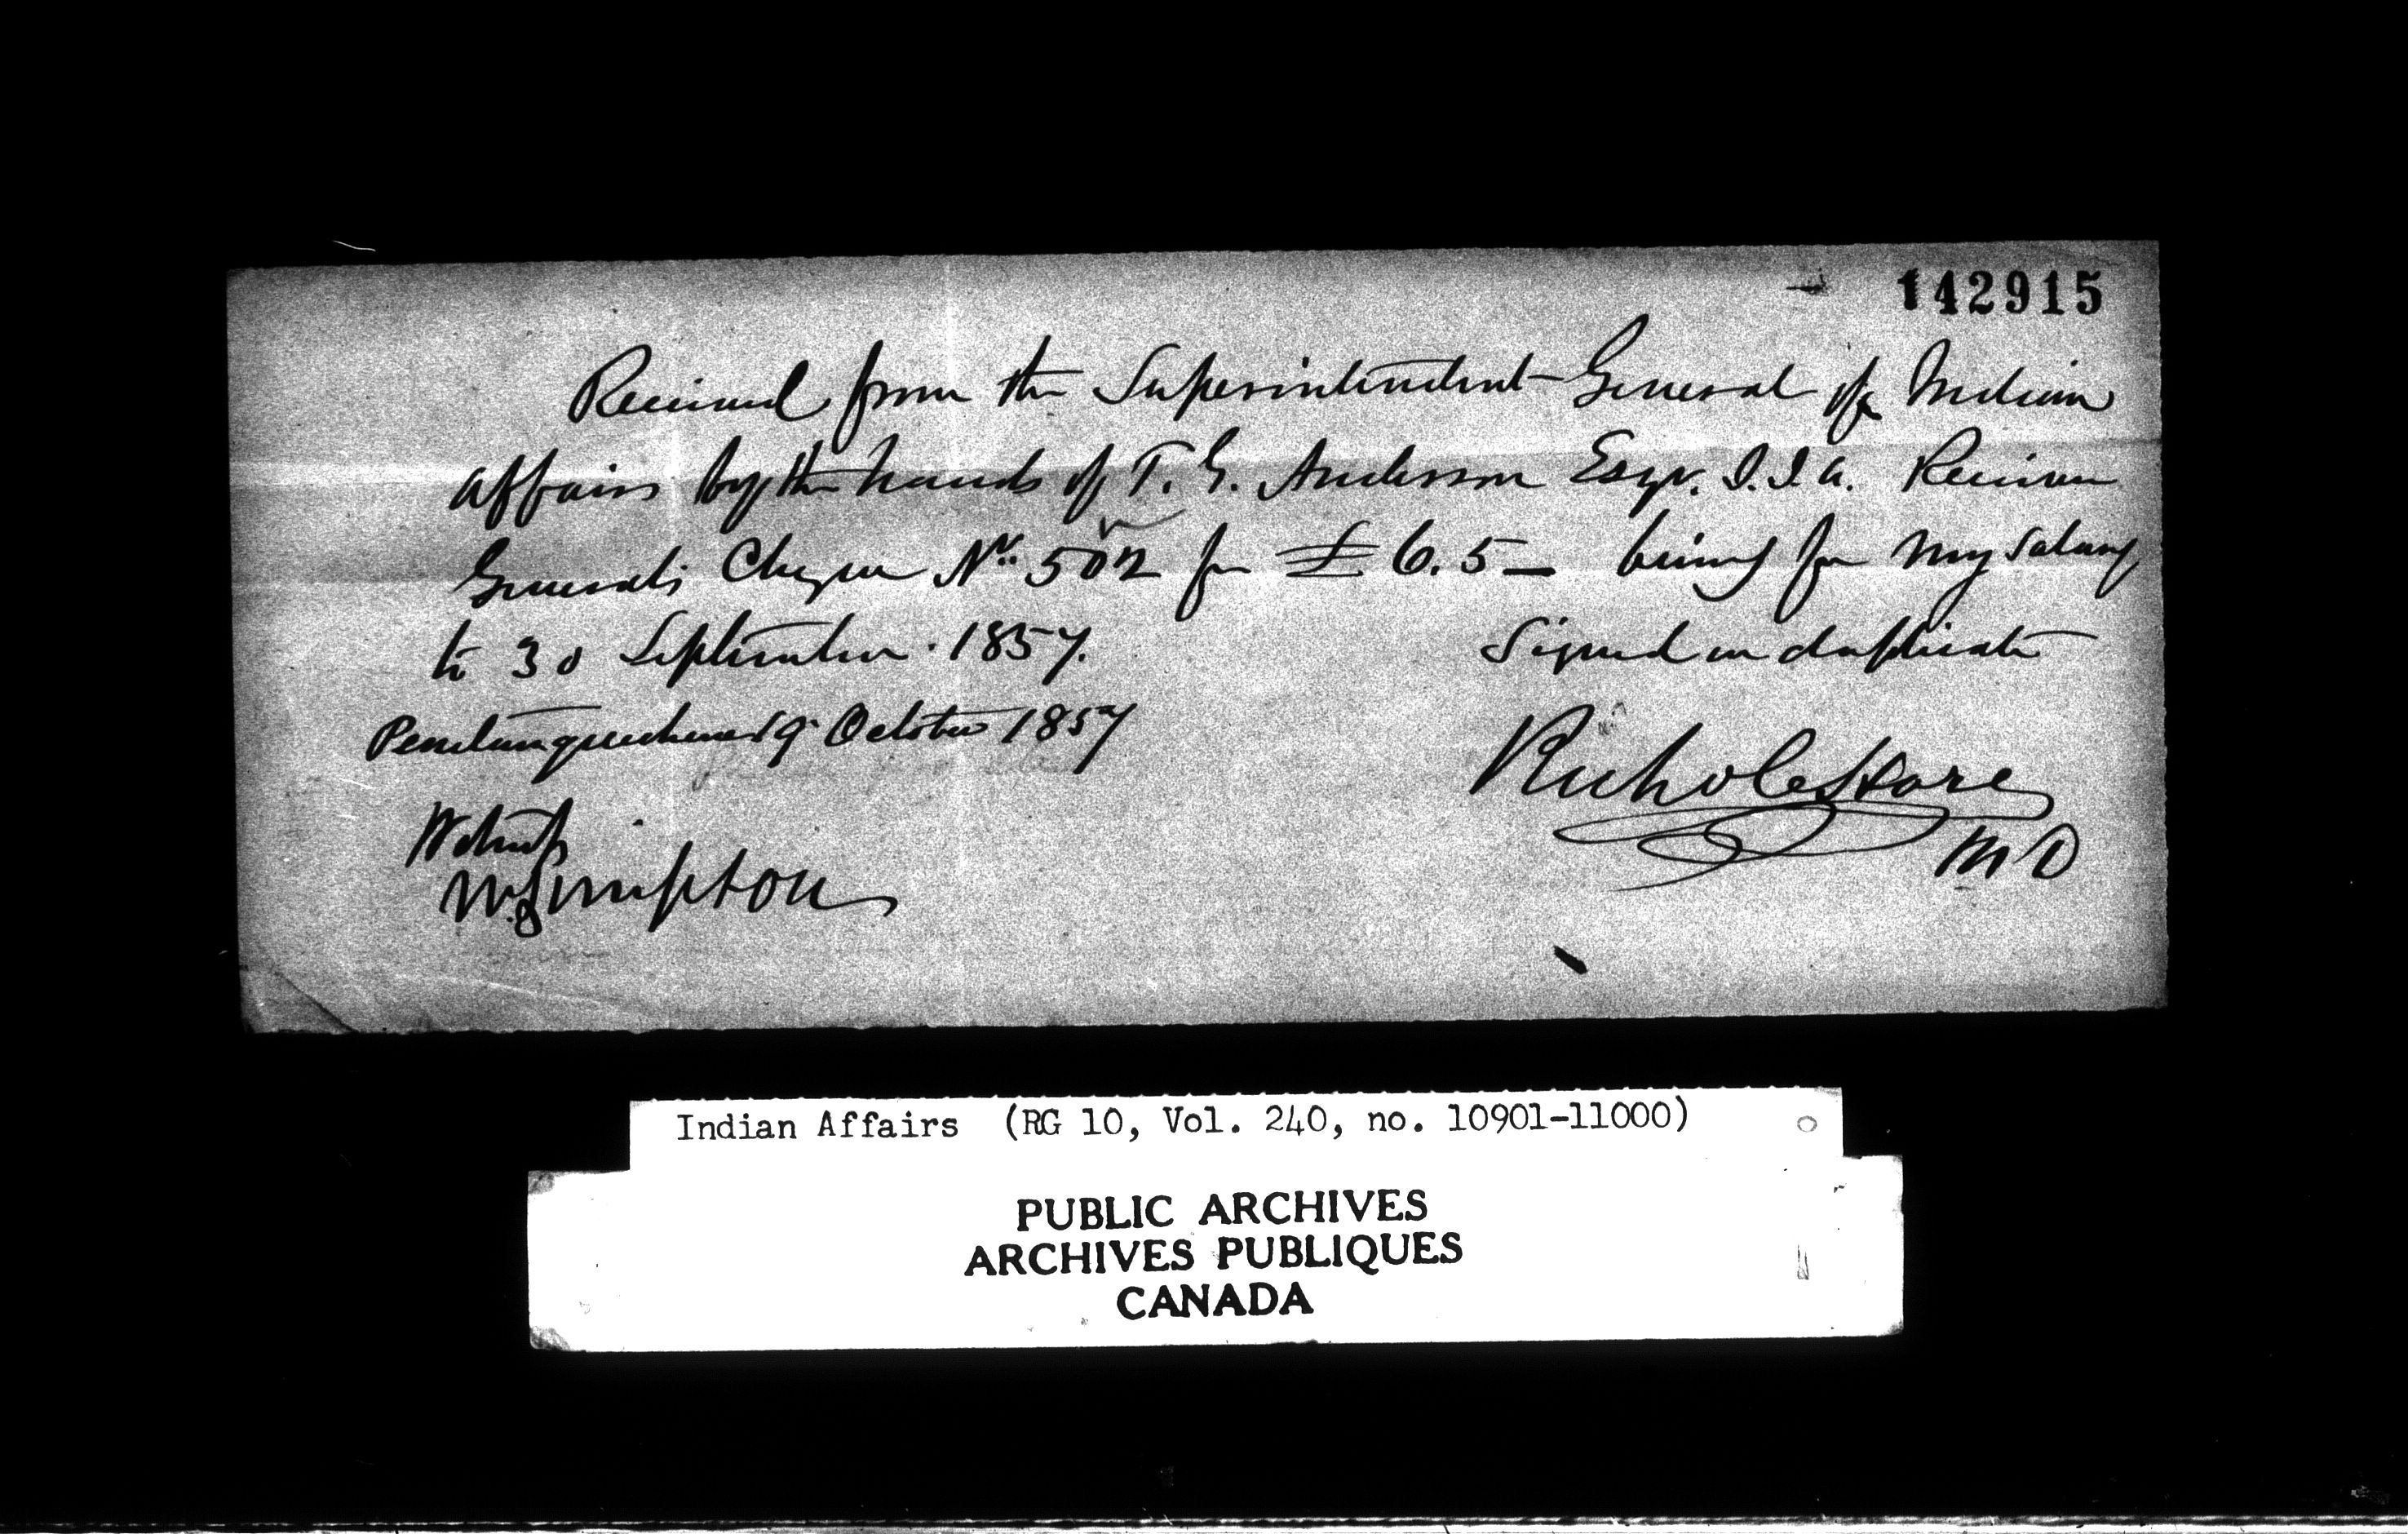 142915
Received from the Superintendent General of Indian
Affairs by the hands of T. G. Anderson Esqr. S. I. A. Receiver
Generals Cheque No. 502 for £ 6. 5 — being for my salary
to 30 September. 1857.
Signed in duplicate
Penetanguishene 19 October 1857
M D
Witness
W. Simpson
Indian Affairs (RG 10, Vol. 240, no. 10901-11000)
PUBLIC ARCHIVES
ARCHIVES PUBLIQUES
CANADA